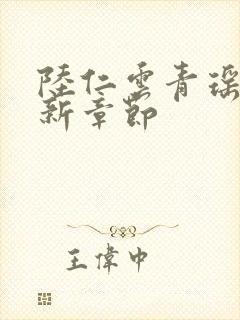 陸仁雲青瑶
新章節
王偉中